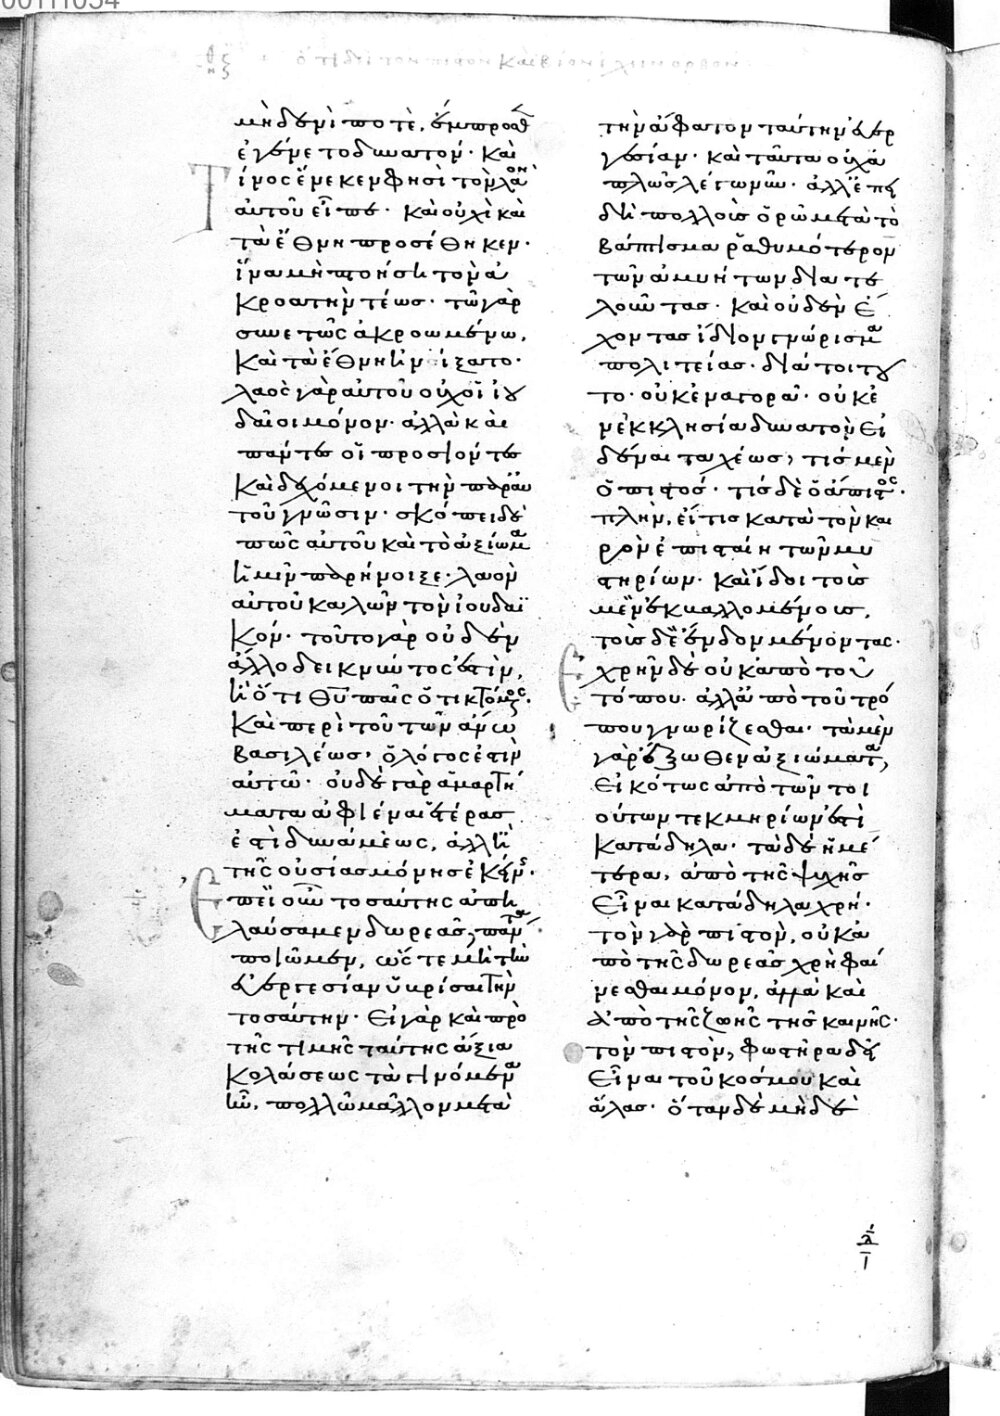 μηδενὶ ποτὲ, ἔμπροσθ
ἐγένετο δυνατόν· Καὶ
τίνος ἕνεκεν φησὶ τὸν λαὸν
αὐτοῦ εἶπε· Καὶ οὐχὶ καὶ
τὰ ἔθνη προσέθηκεν·
ἵνα μὴ πτοήσῃ τὸν ἀ
κροατὴν τέως· τῶ γὰρ
συνετῶς ἀκροωμένω,
Καὶ τὰ ἔθνη ἠνίξατο·
λαὸς γὰρ αὐτοῦ οὐχ οἱ ἰου
δαῖοι μόνον· ἀλλὰ καὶ
πάντες οἱ προσιόντες
Καὶ δεχόμενοι τὴν παρ' αὐ
τοῦ γνῶσιν· σκόπει δὲ
πῶς αὐτοῦ καὶ τὸ ἀξίωμα
ἡμῖν παρήνοιξε· λαὸν
αὐτοῦ καλῶν τὸν ἰουδαϊ
Κόν· τοῦτο γὰρ οὐδὲν
ἄλλο δεικνύντος ἐστὶν,
ἢ ὅτι θῦ παῖς ὁ τικτόμενος·
Καὶ περὶ τοῦ τῶν ἄνω
βασιλέως, ὁ λόγος ἐστὶν
αὐτῶ· οὐδὲ γὰρ ἁμαρτή
ματα ἀφιέναι ἑτέρας
ἐστὶ δυνάμεως, ἀλλ' ἢ
τῆς οὐσίας μόνης ἐκείνης·
Ἐπεὶ οὖν τοσαύτης ἀπη
λαύσαμεν δωρεᾶς, πάντα
ποιῶμεν, ὥστε μὴ τὴν
εὐεργεσίαν ὑβρίσαι τὴν
τοσαύτην· Εἰ γὰρ καὶ πρὸ
τῆς τιμῆς ταύτης ἄξια
Κολάσεως τὰ γινόμενα
ἦν, πολλῶ μᾶλλον μετὰ
τὴν ἄφατον ταύτην εὐερ
γεσίαν· καὶ ταῦτα οὐχ ἁ
πλῶς λέγω νῦν· ἀλλ' ἐπει
δὴ πολλοὺς ὁρῶ μετὰ τὸ
βάπτισμα ῥαθυμότερον
τῶν ἀμυήτων διατε
λοῦντας· Καὶ οὐδὲν ἔ
χοντας ἴδιον γνώρισμα
πολιτείας· διά τοι του
το· οὐκ ἐν ἀγορᾶ· οὐκ ἐ
ν ἐκκλησία δυνατὸν εἰ
δέναι ταχέως, τίς μὲν
ὁ πιστός· τίς δὲ ὁ ἄπιστος·
πλὴν, εἴ τις κατὰ τὸν και
ρὸν ἐπισταίη τῶν μυ
στηρίων· Καὶ ἴδοι τοὺς
μὲν ἐκβαλλομένους,
τοὺς δὲ ἔνδον μένοντας·
Ἐχρῆν δὲ οὐκ ἀπὸ τοῦ
τόπου· ἀλλ' ἀπὸ τοῦ τρό
που γνωρίζεσθαι· τὰ μὲν
γὰρ ἔξωθεν ἀξιώματα,
Εἰκότως ἀπὸ τῶν τοι
ούτων τεκμηρίων ἐστὶ
κατάδηλα· τὰ δὲ ἡμέ
τερα, ἀπὸ τῆς ψυχῆς
Εἶναι κατάδηλα χρή·
τὸν γὰρ πιστὸν, οὐκ ἀ
πὸ τῆς δωρεᾶς χρὴ φαί
νεσθαι μόνον, ἀλλὰ καὶ
ἀπὸ τῆς ζωῆς τῆς καινῆς·
τὸν πιστὸν, φωστῆρα δεῖ
Εἶναι τοῦ κόσμου καὶ
ἅλας· ὅταν δὲ μηδὲ